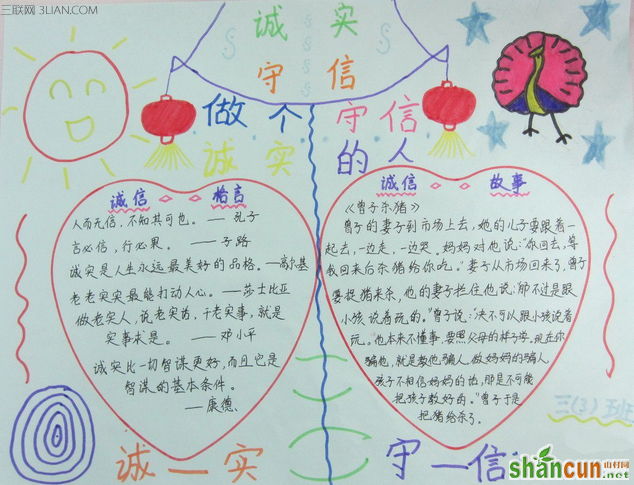 三联网 3LIAN.COM
诚 实
守 信
做个 守信
诚实 的人
诚信 格言
人而无信,不知其可也。—— 孔子
言必信,行必果。—— 子路
诚实是人生永远最美好的品格。—高尔基
老老实实最能打动人心。——莎士比亚
做老实人,说老实话,干老实事,就是
实事求是。——邓小平
诚实比一切智谋更好,而且它是
智谋的基本条件。
——康德.
诚信 故事
《曾子杀猪》
曾子的妻子到市场上去,她的儿子要跟着一
起去,一边走,一边哭。妈妈对他说:“你回去,等
我回来后杀猪给你吃。”妻子从市场回来了,曾子
要捉猪来杀,他的妻子拦住他说:“那不过是跟
小孩说着玩的。”曾子说:“决不可以跟小孩说着
玩。他本来不懂事,要照父母的样子学,现在你
骗他,就是教他骗人,做妈妈的骗人,
孩子不相信妈妈的话,那是不可能
把孩子教好的。”曾子于是
把猪给杀了.
三(3)班
诚一实
守一信
shancun
山村网
.net